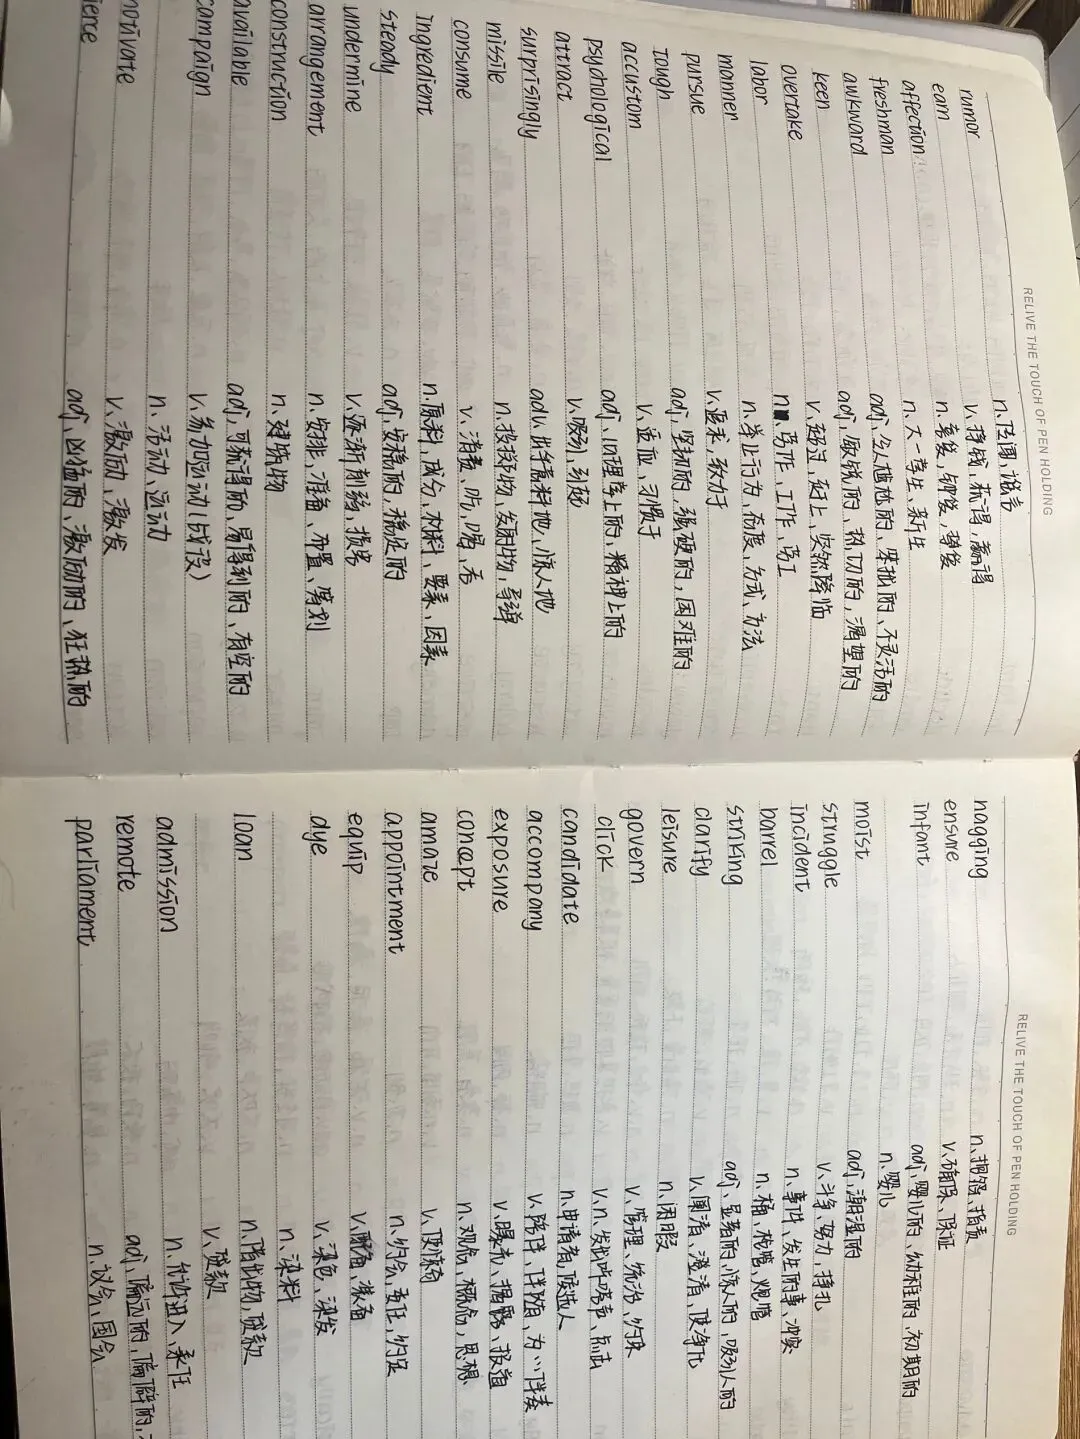 RELIVE THE TOUCH OF PEN HOLDING
rumor n.传闻,谣言
earn v.挣钱,获得,赢得
affection n.喜爱,钟爱,挚爱
freshman n.大一学生、新生
awkward adj.令人尴尬的、笨拙的、不灵活的
keen adj.敏锐的,热切的,渴望的
overtake v.超过,赶上,突然降临
labor n.劳作,工作,劳工
manner n.举止行为,态度,方式、方法
pursue v.追求,致力于
tough adj.坚韧的,强硬的,困难的
accustom v.适应,习惯于
psychological adj.心理学上的,精神上的
attract v.吸引,引起
surprisingly adv.出乎意料地,惊人地
missile n.投掷物,发射物,导弹
consume v.消费、吃,喝,
ingredient n.原料,成分,材料、要素、因素
steady adj.安稳的,稳定的
undermine v.逐渐削弱,损害
arrangement n.安排,准备、布置、筹划
construction n.建筑物
available adj.可获得的,易得到的、有空的
campaign v.参加运动(战役)
n.活动、运动
motivate v.激励,激发
ience adj.凶猛的,激励的、狂热的
RELIVE THE TOUCH OF PEN HOLDING
nagging n.指责
ensure v.确保、保证
infant adj.婴儿的,幼稚的,初期的
n.婴儿
moist adj.潮湿的
struggle v.斗争,努力,挣扎
incident n.事件,发生的事、冲突
barrel n.桶,枪管,炮管
striking adj.显著的,惊人的,吸引人的
clarify v.阐清,澄清,使净化
leisure n.闲暇
govern v.管理、统治,约束
click v.n.发出咔嗒声,点击
candidate n.申请者,候选人
accompany v.陪伴,伴随,为…伴奏
exposure v.曝光,揭露,报道
concept n.观点,概念,思想
amaze v.使惊奇
appointment n.约会,委任,约定
equip v.配备,装备
dye v.染色,染发
n.染料
loan n.借出物,贷款
v.贷款
admission n.允许进入,承认
remote adj.偏远的,偏僻的,
parliament n.议会,国会